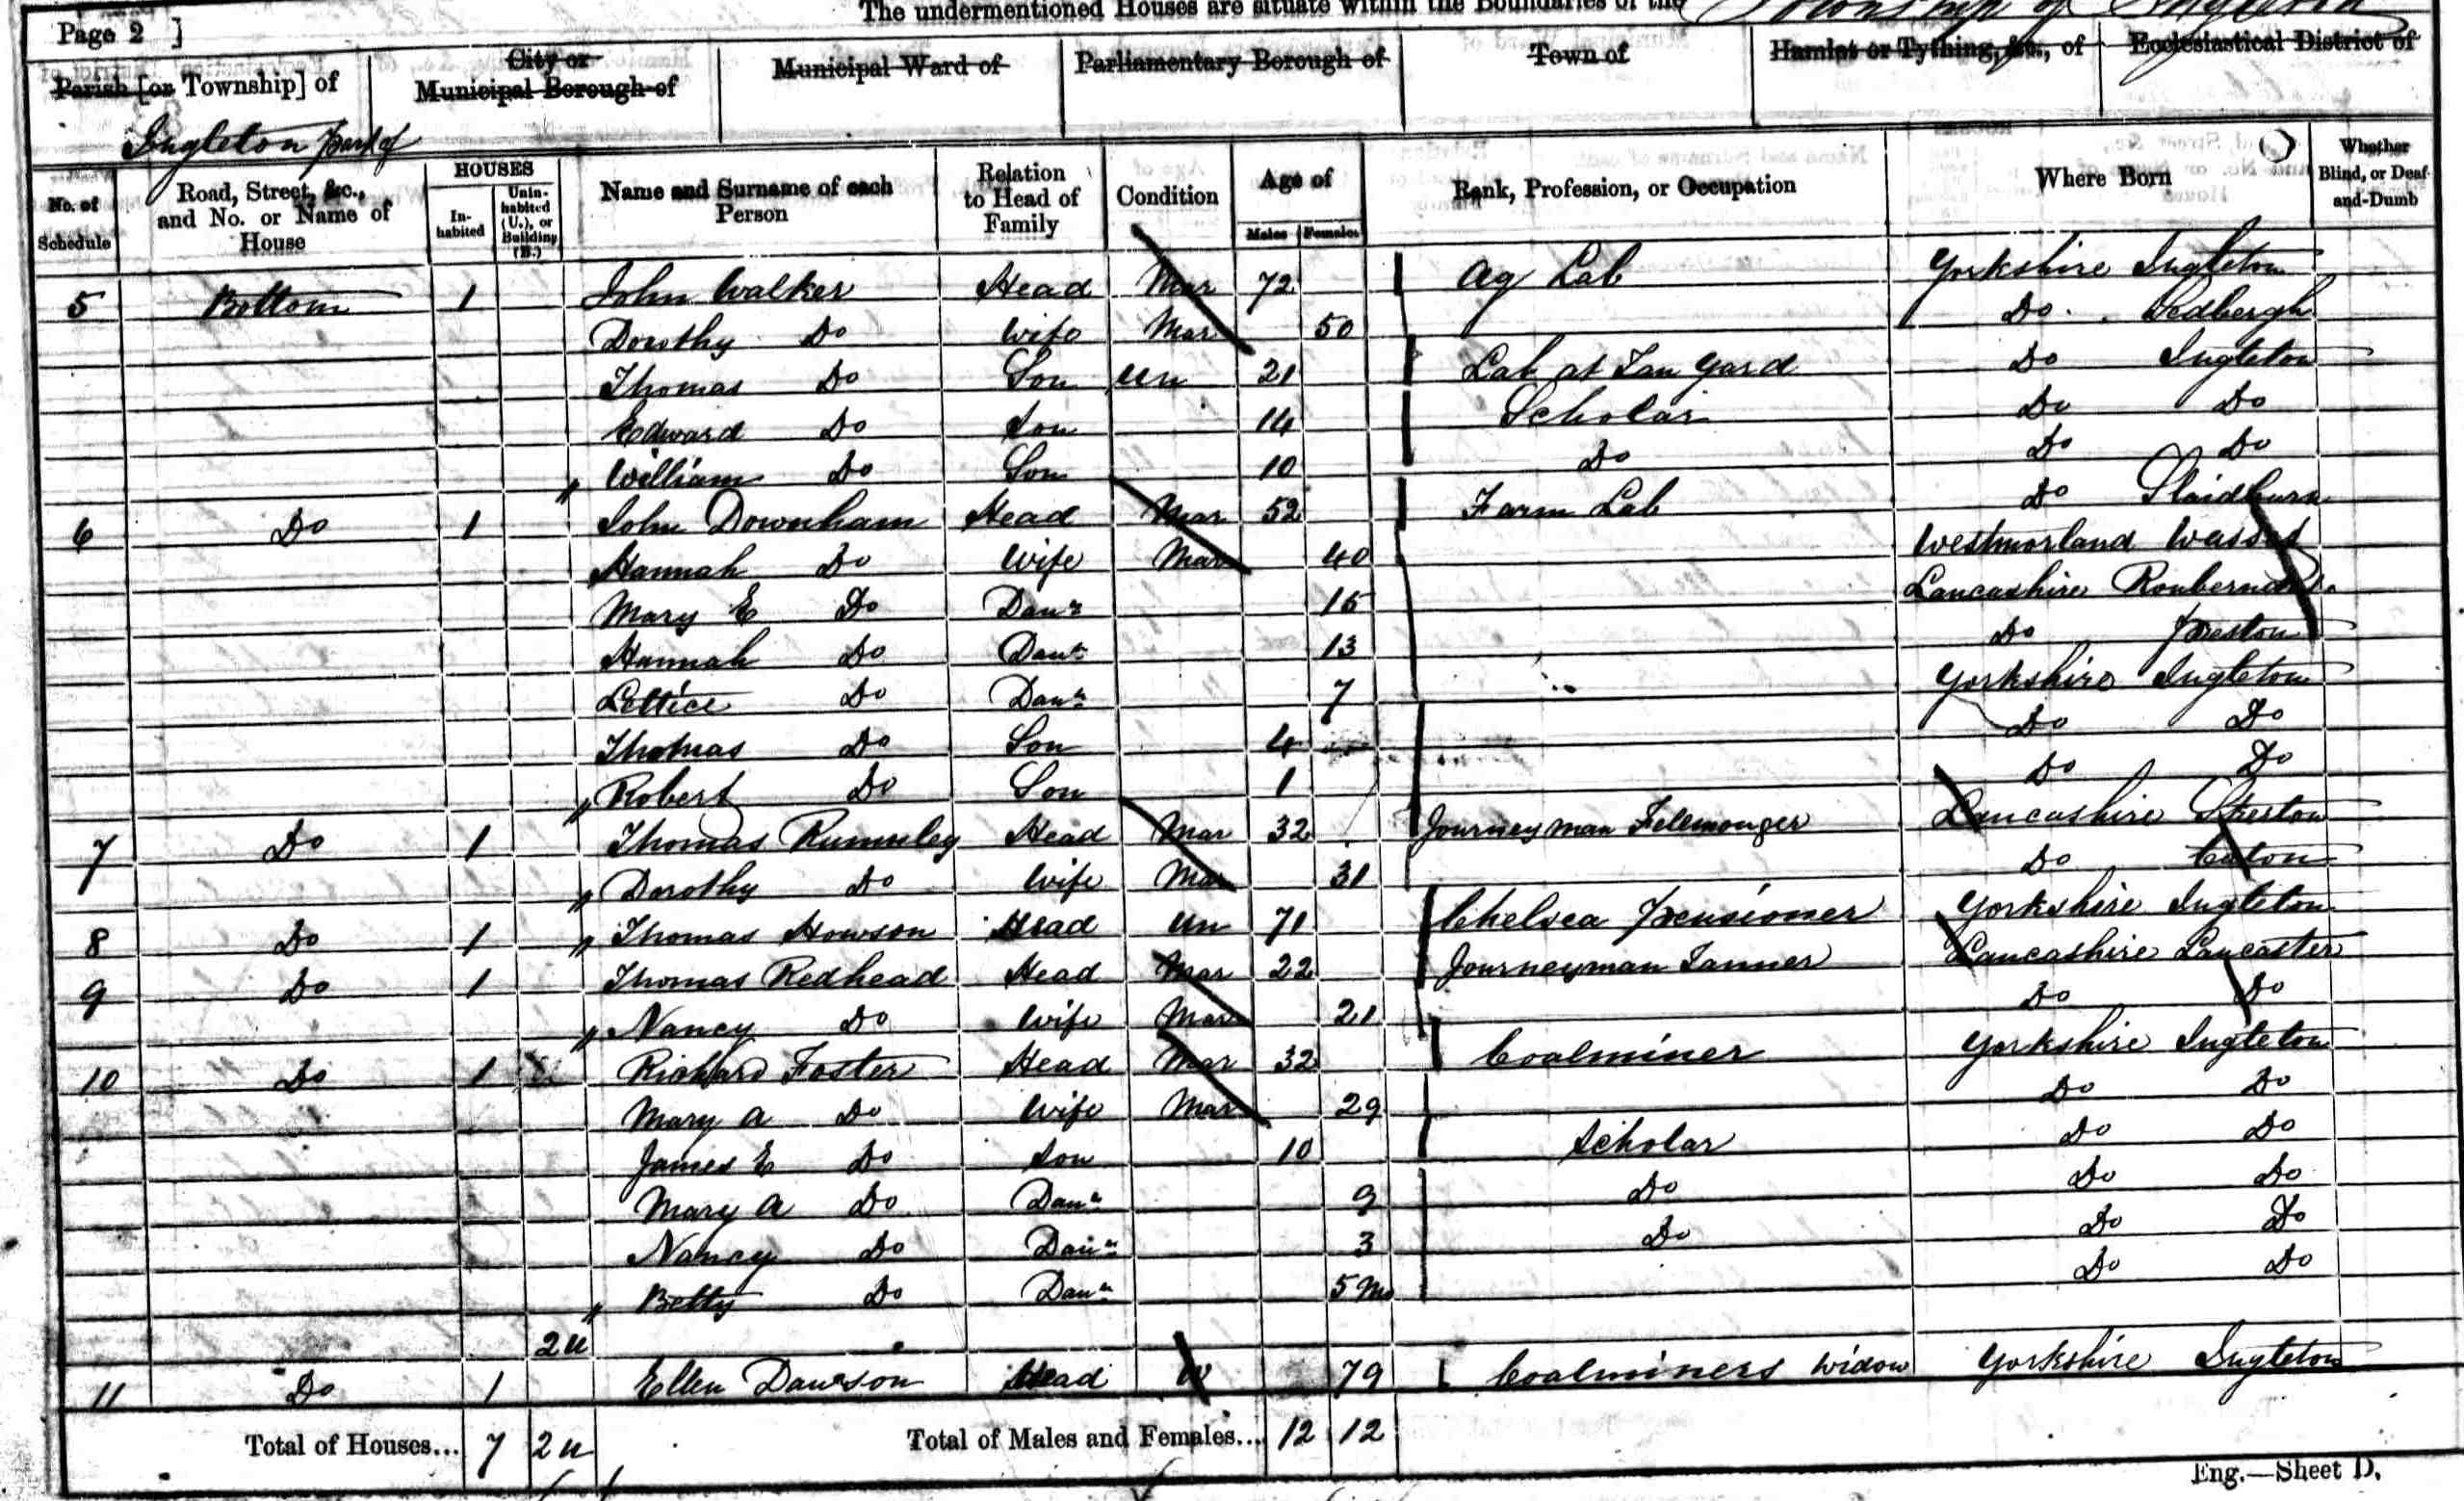 The undermentioned Houses are situate within the Boundaries of the Township of Ingleton
Page 2 ]
Parish [or Township] of
City or Municipal Borough of
Municipal Ward of
Parliamentary Borough of
Town of
Hamlet or Tything, &c., of
Ecclesiastical District of
Ingleton part of
No. of Schedule
Road, Street, &c., and No. or Name of House
HOUSES
In-habited
Unin-habited (U.), or Building (B.)
Name and Surname of each Person
Relation to Head of Family
Condition
Age of
Males Females
Rank, Profession, or Occupation
Where Born
Whether Blind, or Deaf-and-Dumb
5 Bottom 1 John Walker Head Mar 72 Ag Lab Yorkshire Ingleton
Dorothy Do Wife Mar 50 Do Sedbergh
Thomas Do Son Un 21 Lab at Tan Yard Do Ingleton
Edward Do Son 14 Scholar Do Do
" William Do Son 10 Do Do Do
6 Do 1 John Downham Head Mar 52 Farm Lab Do Slaidburn
Hannah Do Wife Mar 40 Westmorland
Mary E Do Daur 15 Lancashire
Hannah Do Daur 13 Do Preston
Lettice Do Daur 7 Yorkshire Ingleton
Thomas Do Son 4 Do Do
" Robert Do Son 1 Do Do
7 Do 1 Thomas Rumnley Head Mar 32 Journeyman Felemonger Lancashire
" Dorothy Do Wife Mar 31 Do Caton
8 Do 1 " Thomas Howson Head Un 71 Chelsea Pensioner Yorkshire Ingleton
9 Do 1 Thomas Redhead Head Mar 22 Journeyman Tanner Lancashire Lancaster
" Nancy Do Wife Mar 21 Do Do
10 Do 1 Richard Foster Head Mar 32 Coalminer Yorkshire Ingleton
Mary A Do Wife Mar 29 Do Do
James E Do Son 10 Scholar Do Do
Mary A Do Daur 9 Do Do Do
Nancy Do Daur 3 Do Do Do
" Betty Do Daur 5 Mo Do Do
2 U
11 Do 1 Ellen Dawson Head W 79 Coalminers Widow Yorkshire Ingleton
Total of Houses... 7 2 U Total of Males and Females... 12 12
Eng.—Sheet D.